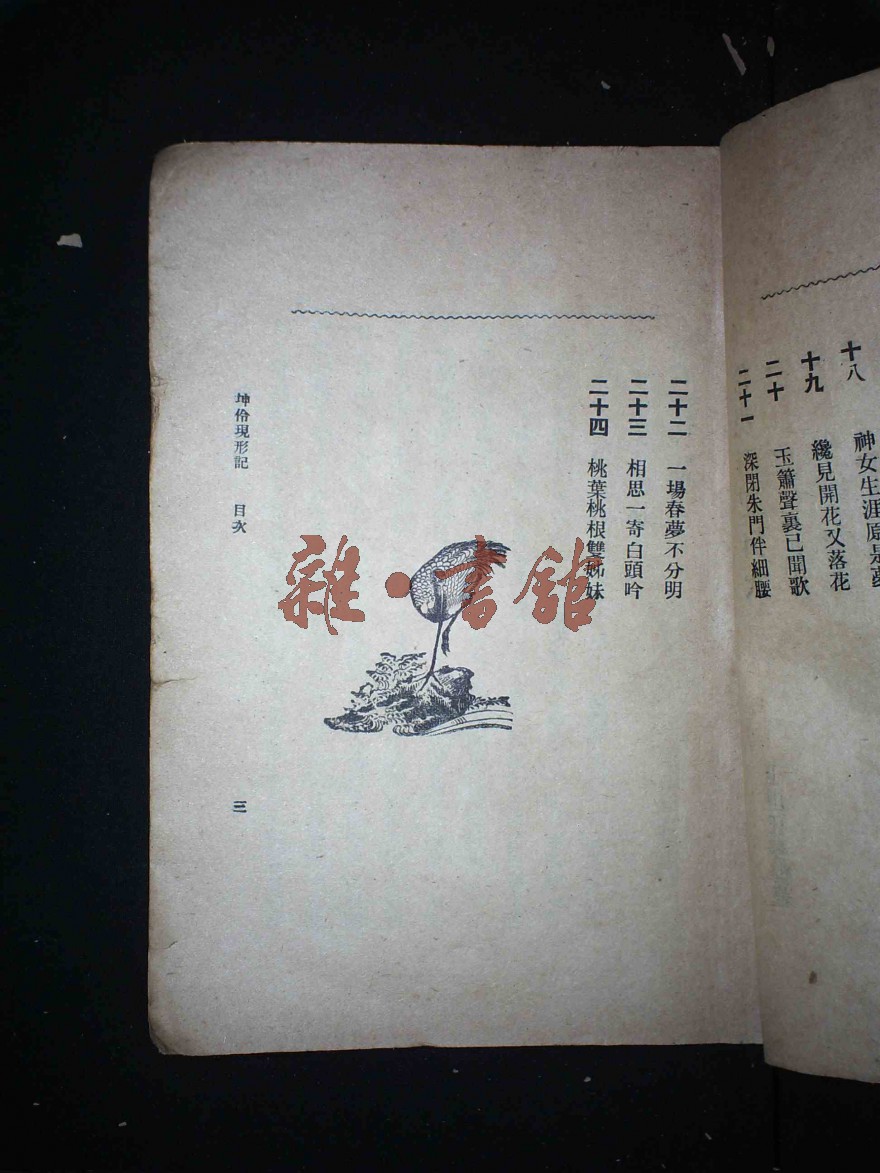 十八　神女生涯原是夢
十九　纔見開花又落花
二十　玉簫聲裏已聞歌
二十一　深閉朱門伴細腰
二十二　一場春夢不分明
二十三　相思一寄白頭吟
二十四　桃葉桃根雙姊妹
坤伶現形記　目次
三
雜·書館